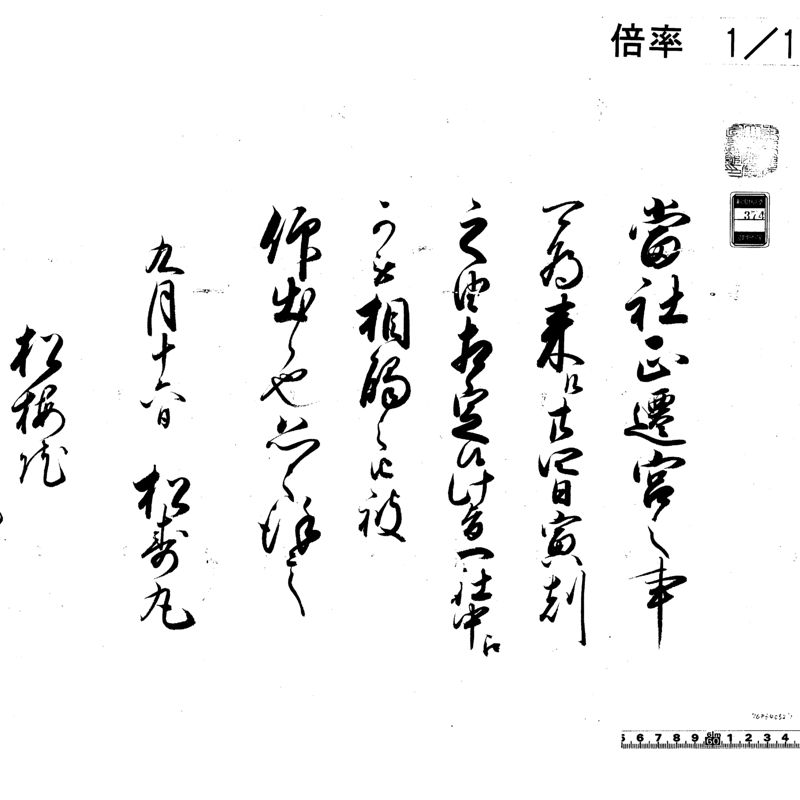 倍率 1/1
374
當社正遷宮之事
可為来廿四日寅刻
之由相定候此旨一社中に
可相觸之由被
仰出也恐々謹言
九月十六日 松寿丸
松梅院
5 6 7 8 9 60 1 2 3 4